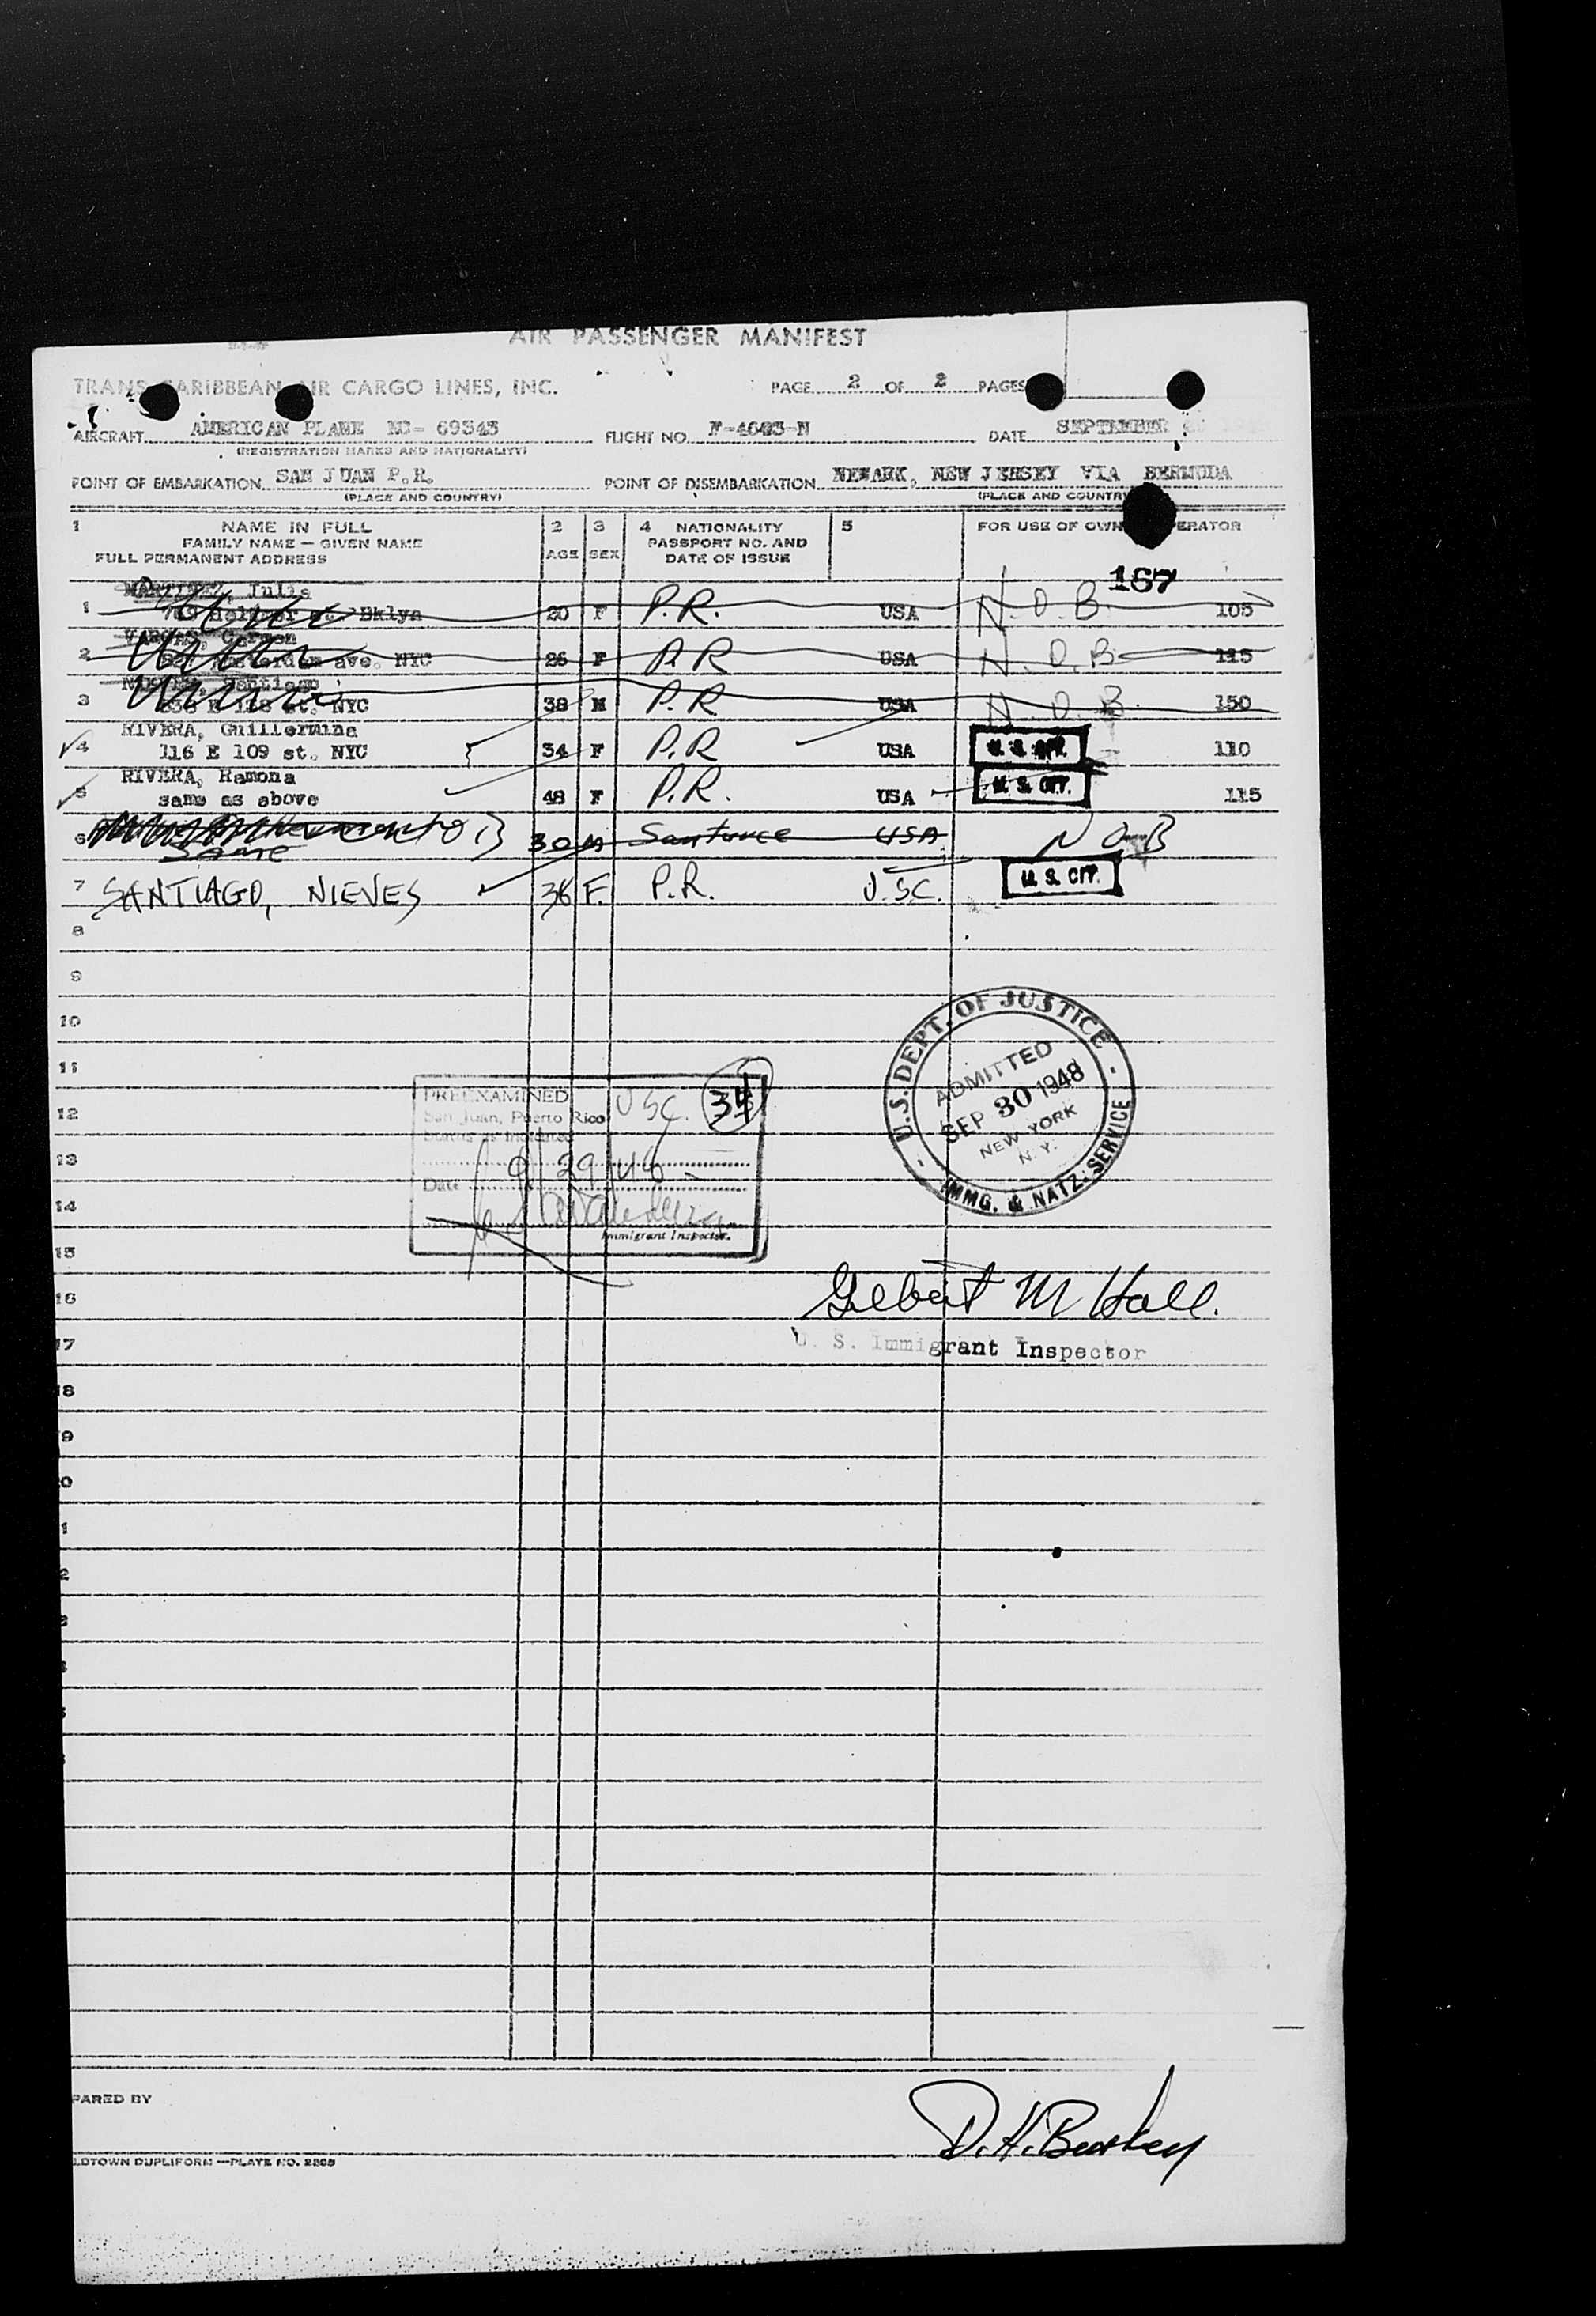 AIR PASSENGER MANIFEST
TRANS CARIBBEAN AIR CARGO LINES, INC. PAGE 2 OF 2 PAGES
AIRCRAFT AMERICAN PLANE NC- 69545 FLIGHT NO. DATE SEPTEMBER
(REGISTRATION MARKS AND NATIONALITY)
POINT OF EMBARKATION SAN JUAN P.R. POINT OF DISEMBARKATION NEWARK, NEW JERSEY VIA BERMUDA
(PLACE AND COUNTRY) (PLACE AND COUNTRY)
1 NAME IN FULL 2 3 4 NATIONALITY 5 FOR USE OF OWNER OPERATOR
FAMILY NAME — GIVEN NAME AGE SEX PASSPORT NO. AND
FULL PERMANENT ADDRESS DATE OF ISSUE
167
MARTINEZ, Julia
1 Bklyn 20 F P.R. USA N.O.B. 105
VARGAS, Carmen
2 Amsterdam ave. NYC 26 F P.R USA N.O.B 115
Santiago
3 E 118 st. NYC 38 M P.R USA N.O.B. 150
RIVERA, Guillermina
4 116 E 109 st. NYC 34 F P.R USA U. S. CIT. 110
RIVERA, Ramona
5 same as above 48 F P.R. USA U. S. CIT. 115
6 30 M Santurce USA N O B
Same
7 SANTIAGO, NIEVES 36 F. P.R. U.S.C. U. S. CIT.
8
9
10
11
12
13
14
15
16
17
18
PREEXAMINED USC. 34
San Juan, Puerto Rico
Status as indicated
Date 9/29/48
Immigrant Inspector.
U.S. DEPT. OF JUSTICE
ADMITTED
SEP 30 1948
NEW YORK
N. Y.
IMMG. & NATZ. SERVICE
Gilbert M Hall.
U. S. Immigrant Inspector
PARED BY
LDTOWN DUPLIFORM —PLATE NO.